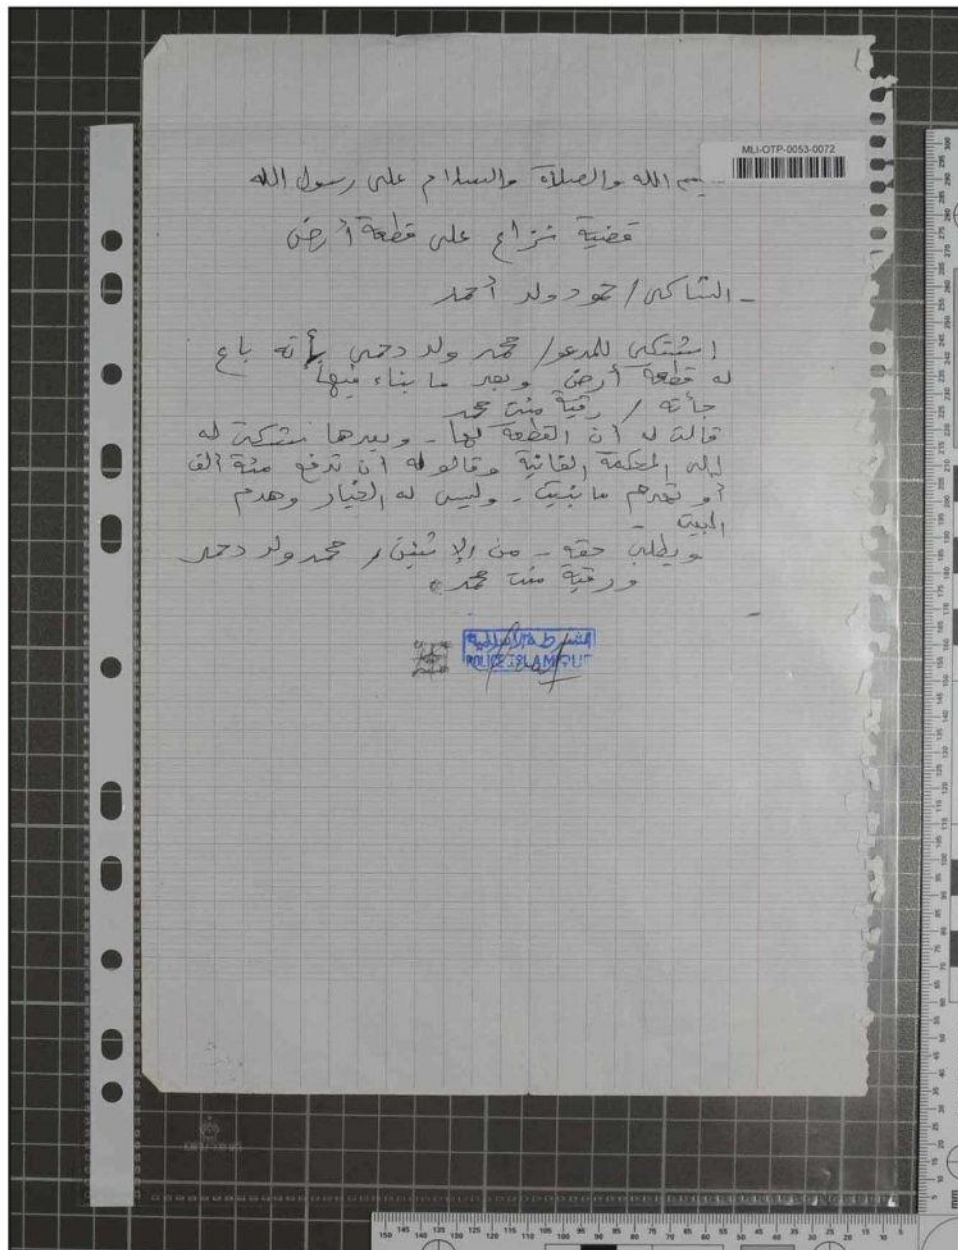 MLI-OTP-0053-0072
بسم الله والصلاة والسلام على رسول الله
قضية نزاع على قطعة أرض
- الشاكي / حمود ولد أحمد
إشتكى للمدعو / محمد ولد دحمى بأنه باع
له قطعة أرض وبعد ما بناء فيها
جأته / رقية منت محمد
قالت له أن القطعة لها - وبعدها شتكت له
إلى المحكمة القانية وقالو له أن تدفع مئة ألف
أو تهدم ما بنيت - وليس له الخيار وهدم
البيت
ويطلب حقه - من الإثنين / محمد ولد دحمى
ورقية منت محمد
الشرطة الإسلامية
POLICE ISLAMIQUE